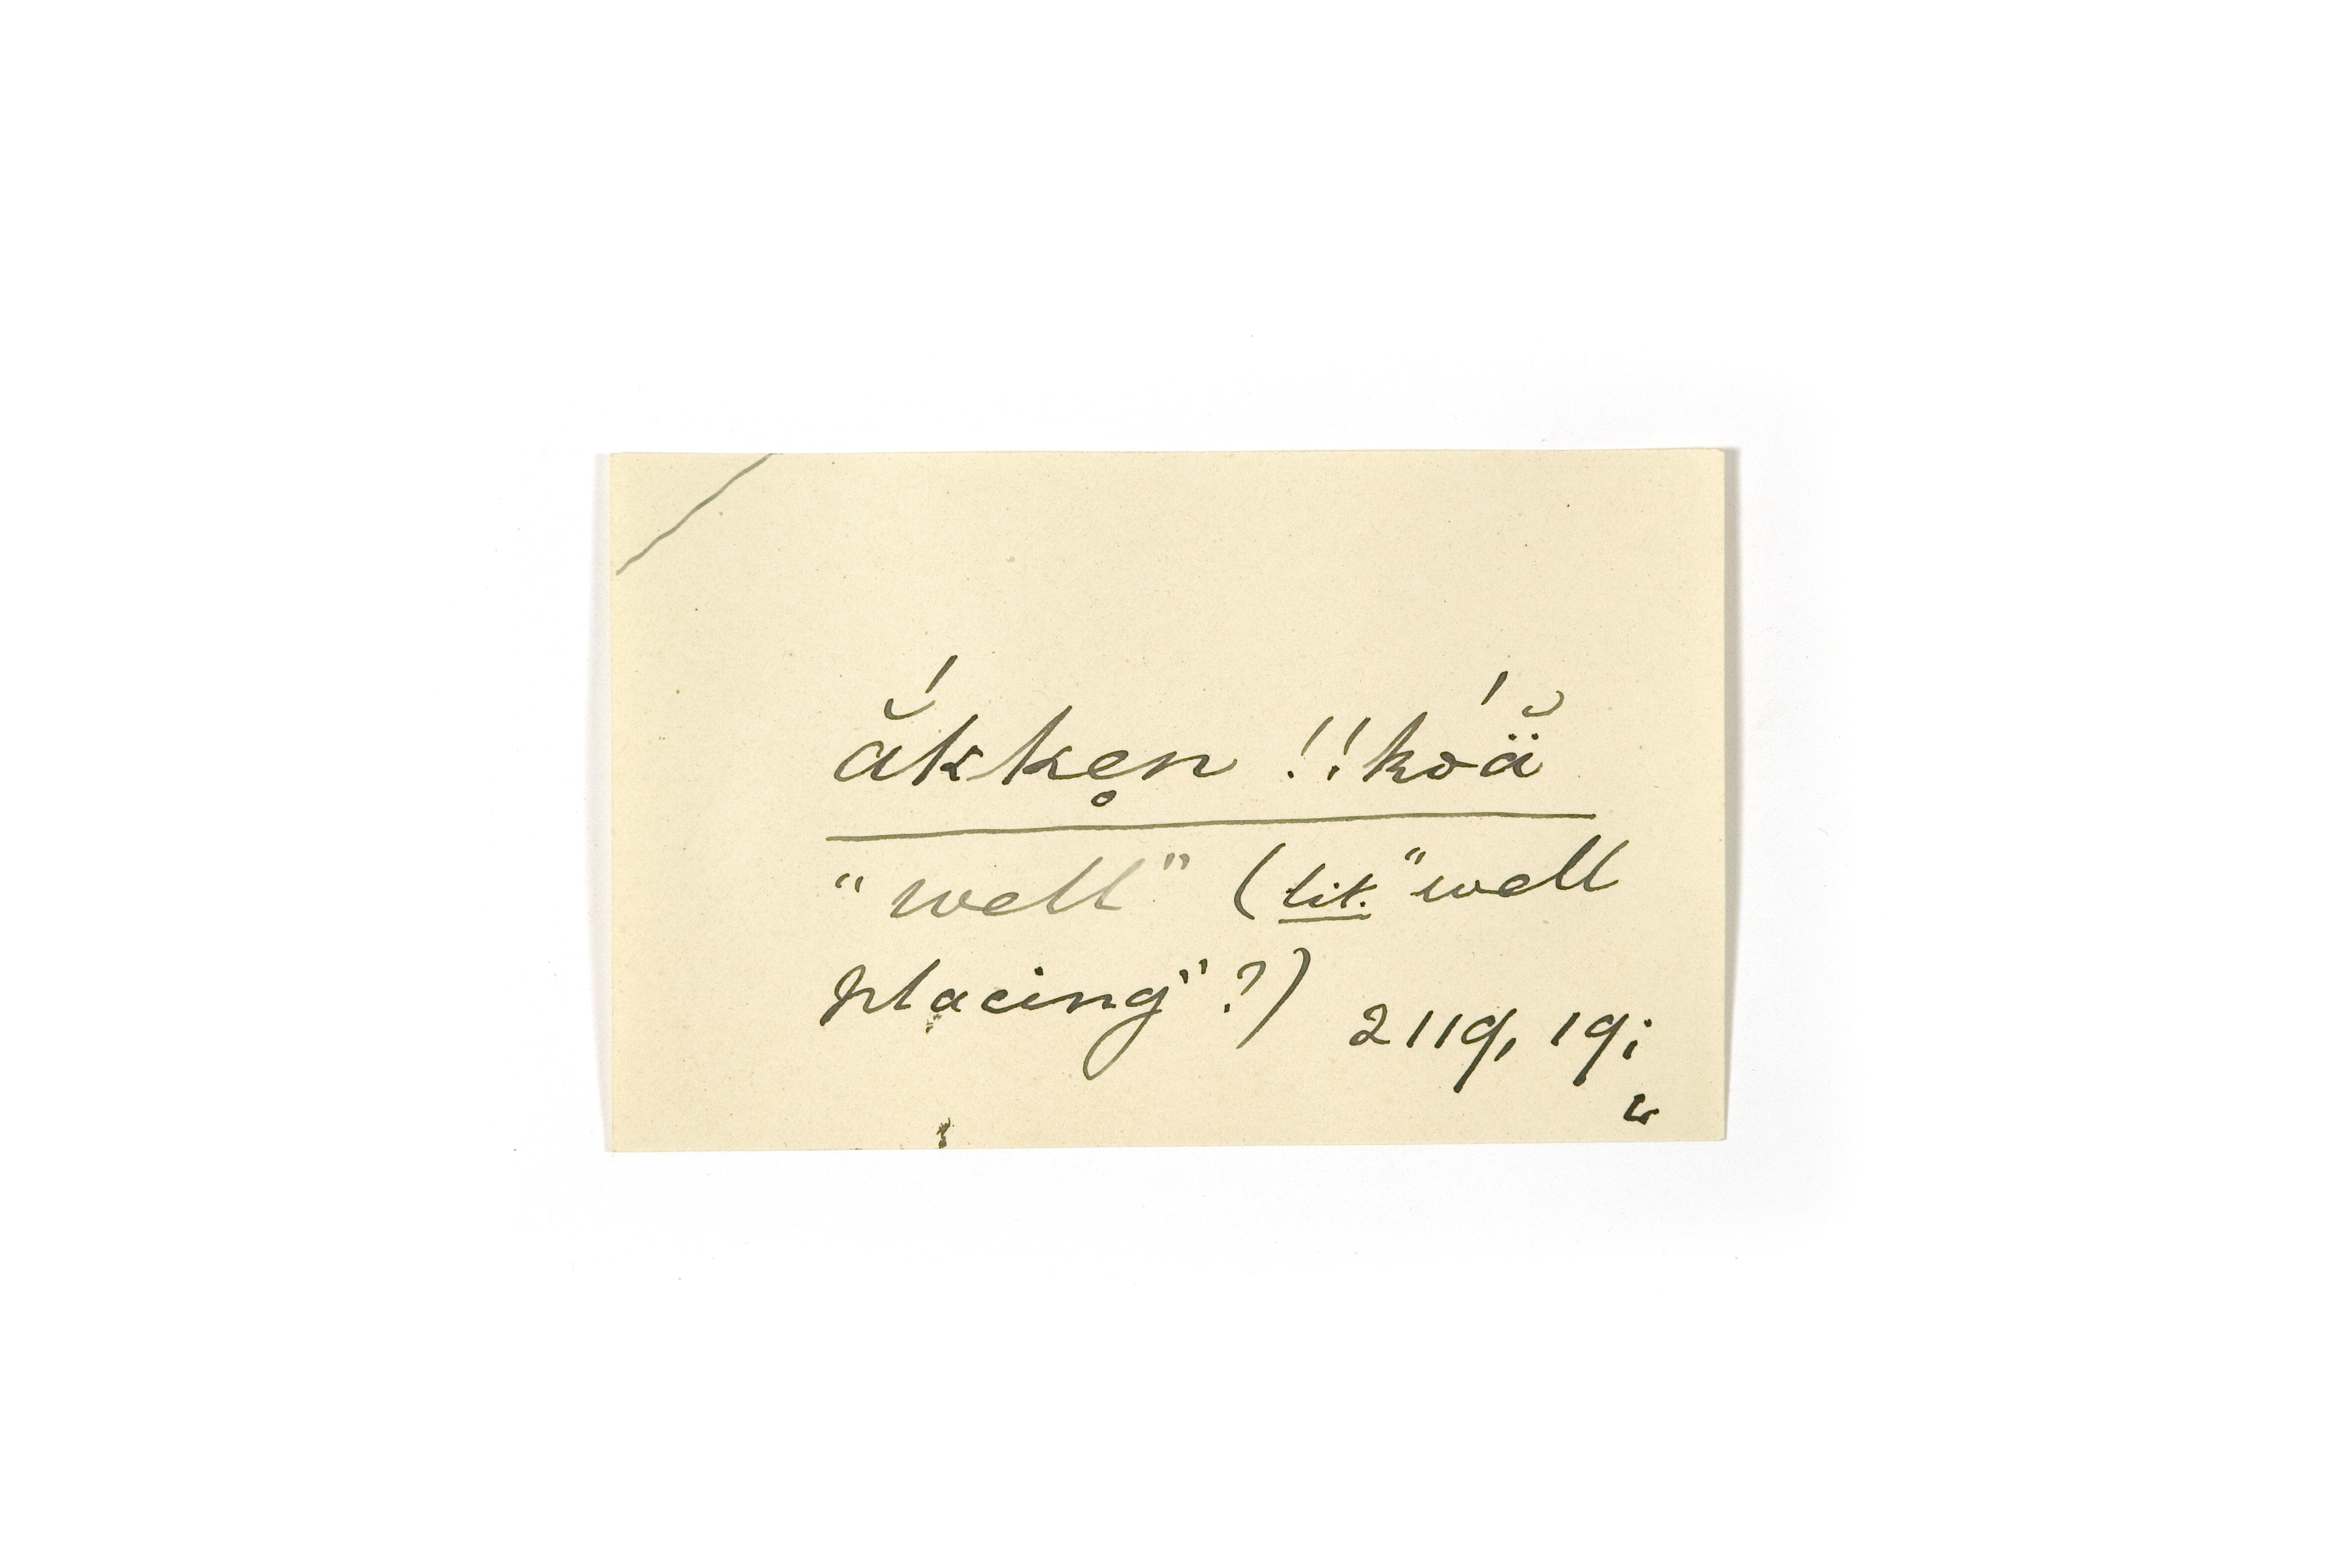 ăkke̥n´ !!kóä̆
"well" (lit. "well
placing"?)
2119, 19;